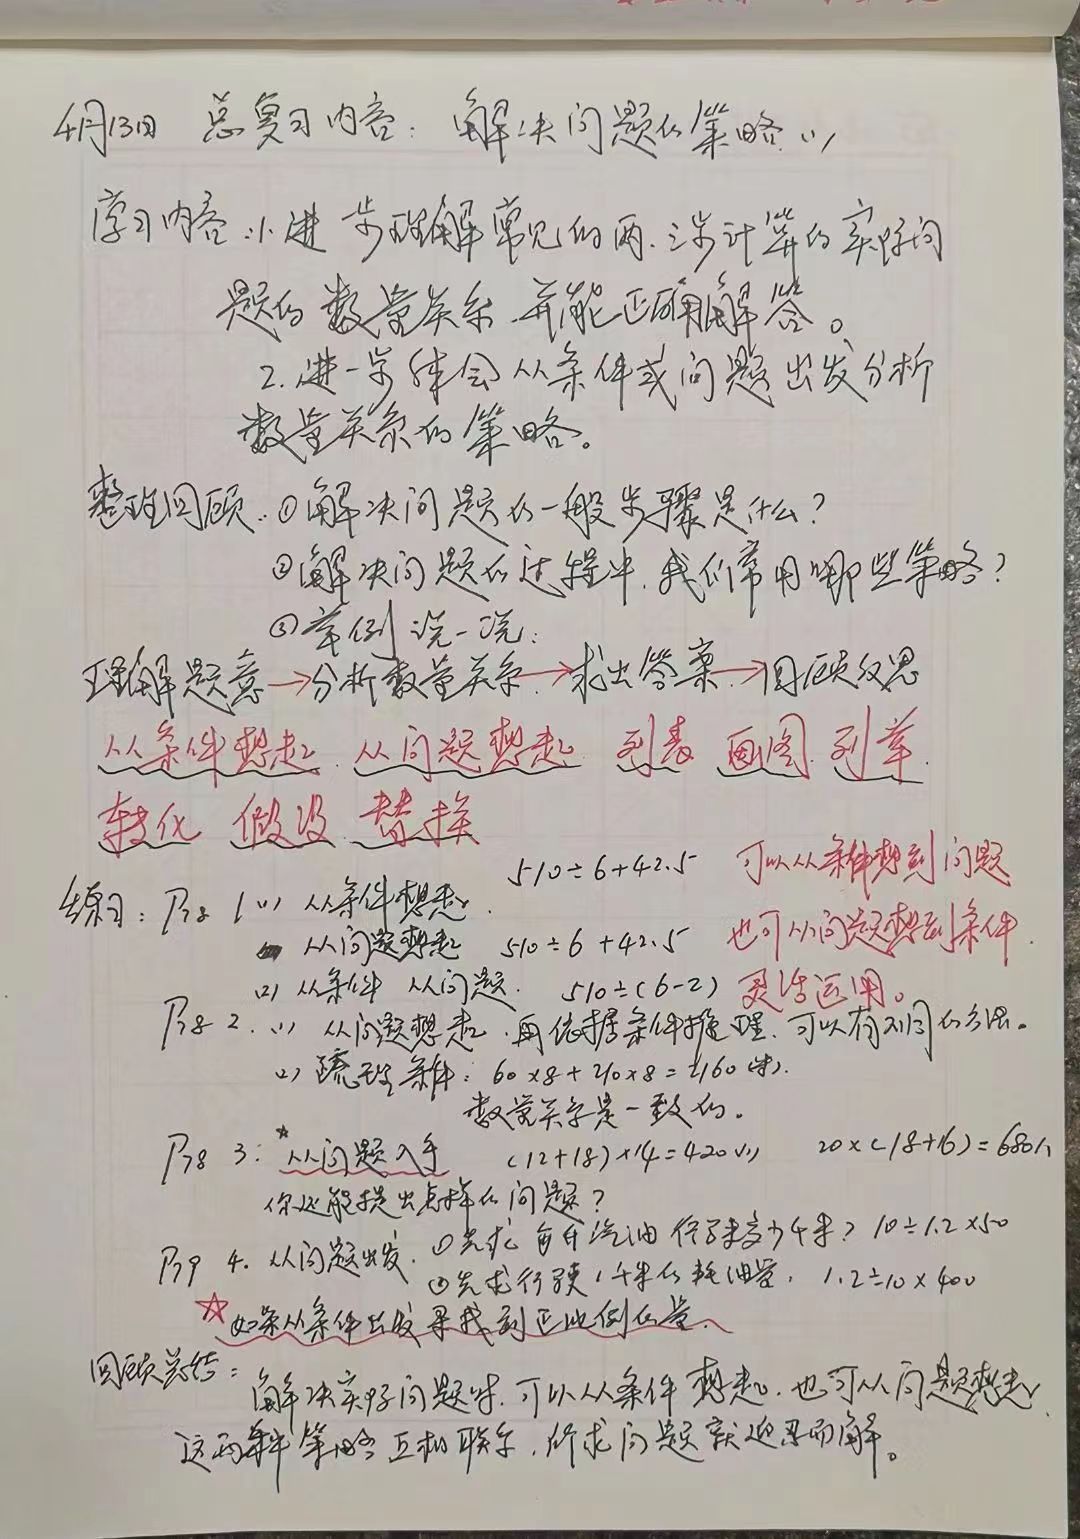 4月13日 总复习内容：解决问题的策略(1)
学习内容：1.进步理解常见的两、三步计算的实际问
题的数量关系.并能正确解答。
2.进一步体会从条件或问题出发分析
数量关系的策略。
整理回顾：①解决问题的一般步骤是什么？
②解决问题的过程中.我们常用哪些策略？
③举例说一说：
理解题意→分析数量关系→求出答案→回顾反思
从条件想起 从问题想起 列表 画图 列举
转化 假设 替换
510÷6+42.5 可以从条件想到问题
练习：P78 1(1) 从条件想起
从问题想起 510÷6+42.5 也可从问题想到条件.
(2) 从条件 从问题. 510÷(6-2) 灵活运用。
P78 2.(1) 从问题想起.再依据条件推理.可以有不同的方法。
(2) 梳理条件：60×8+210×8=2160(米).
数量关系是一致的。
P78 3：*从问题入手 (12+18)×14=420 20×(18+16)=680
你还能提出怎样的问题？
P79 4.从问题出发.①先求每升汽油行驶多少千米？10÷1.2×50
②先求行驶1千米的耗油量. 1.2÷10×400
☆如果从条件出发要找到正比例的量.
回顾总结：
解决实际问题时.可以从条件想起.也可从问题想起
这两种策略互相联系.所求问题就迎刃而解。